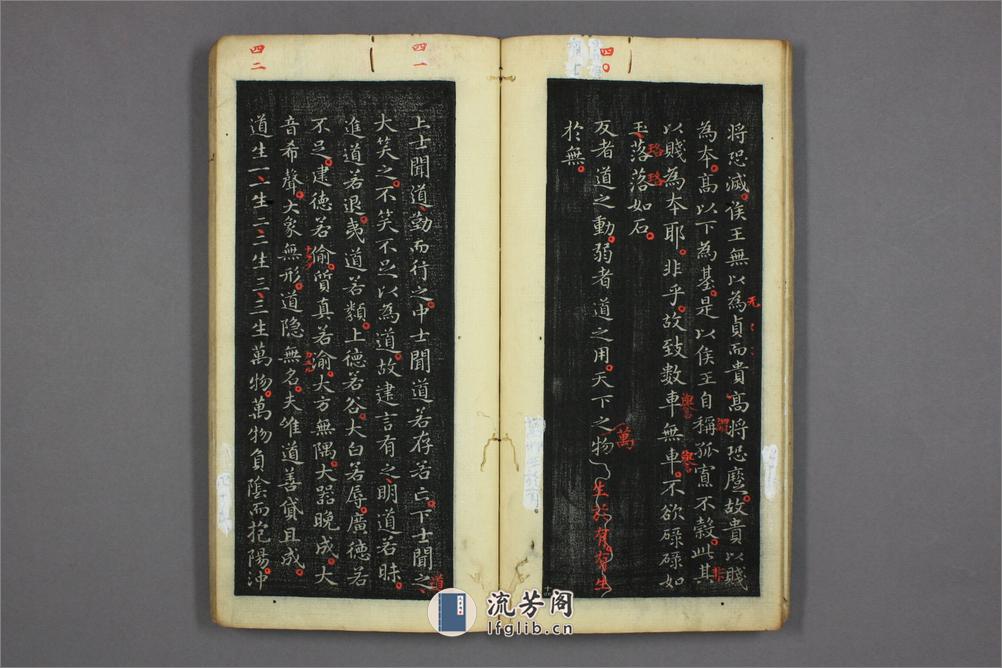 四〇
將恐滅侯王無以為貞而貴高將恐蹷故貴以賤
為本高以下為基是以侯王自稱孤寡不穀此其
以賤為本耶非乎故致數車無車不欲碌碌如
玉落落如石
反者道之動弱者道之用天下之物生於有有生
於無
无
譽
譽
珞珞
萬
非
道
四一
四二
上士聞道勤而行之中士聞道若存若亡下士聞之
大笑之不笑不足以為道故建言有之明道若昧
進道若退夷道若類上德若谷大白若辱廣德若
不足建德若偷質真若渝大方無隅大器晚成大
音希聲大象無形道隱無名夫唯道善貸且成
道生一一生二二生三三生萬物萬物負陰而抱陽沖
流芳阁
lfglib.cn